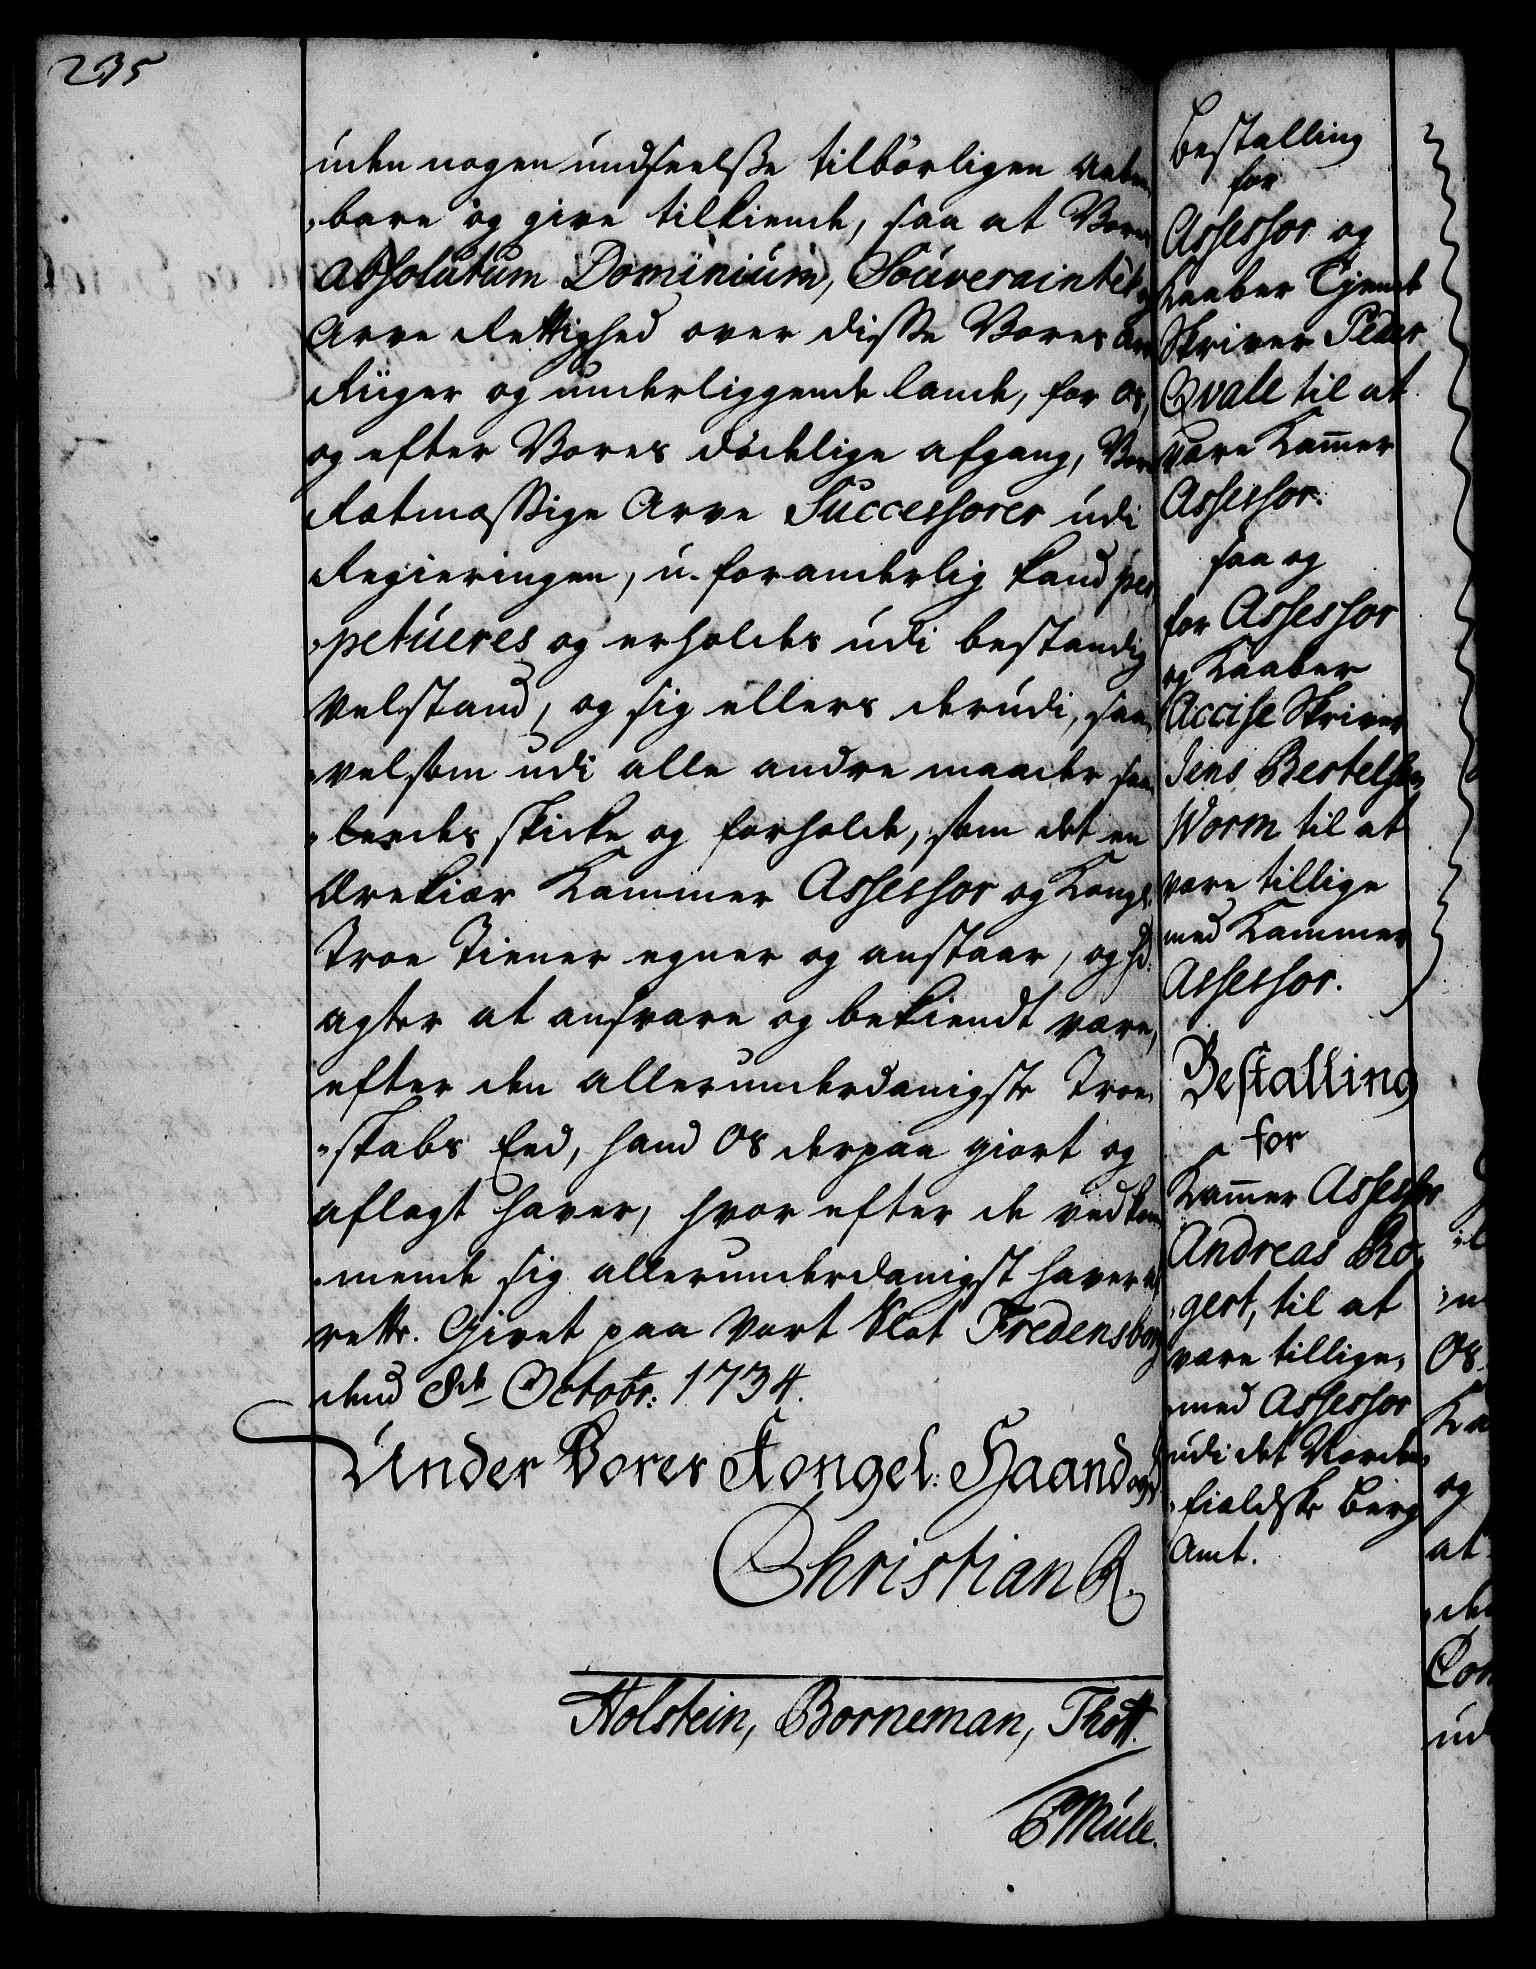 235
uden nogen undseelsse tilbörligen aaben-
-bare og give tilkiende, saa at Vores
absolutum Dominium, Souverainitet og
Arve Rettighed over disse Vores Arve
Riiger og underliggende Lande, for os,
og efter Vores dödelige afgang, Vore
Retmæssige Arve Successorer udi
Regieringen, u-foranderlig kand per-
-petueres og erholdes udi bestandig
Velstand, og sig ellers derudi, saa-
-velsom udi alle andre maader saa-
-ledes skicke og forholde, som det en
Ærekiær Kammer Assessor og Kongl.
Troe Tiener egner og anstaar, og hd.
agter at ansvare og bekiendt være,
efter den allerunderdanigste Troe-
-skabs Eed, hand Os derpaa giort og
aflagt haver, hvorefter de vedkom-
-mende sig allerunderdanigst haver at
rette. Givet paa Vort Slot Fredensborg
dend 8de Octobr: 1734.
Under Vores Kongel: Haand og
Christian R.
Holstein, Borneman, Thott.
E Mule.
Bestalling
for
Assessor og
Kaaber Tjende
Skriver Peder
Qvale til at
være Kammer
Assessor.
saa og
for Assessor
og Kaaber
Accise Skriver
Jens Bertelsen
Worm til at
være tillige
med Kammer
Assessor.
Bestalling
for
Kammer Assessor
Andreas Ro-
-gert, til at
være tillige-
-med Assessor
udi det Norden-
-fieldske Berg
Amt.
Os
Ka
og
at
-de
Con
ud